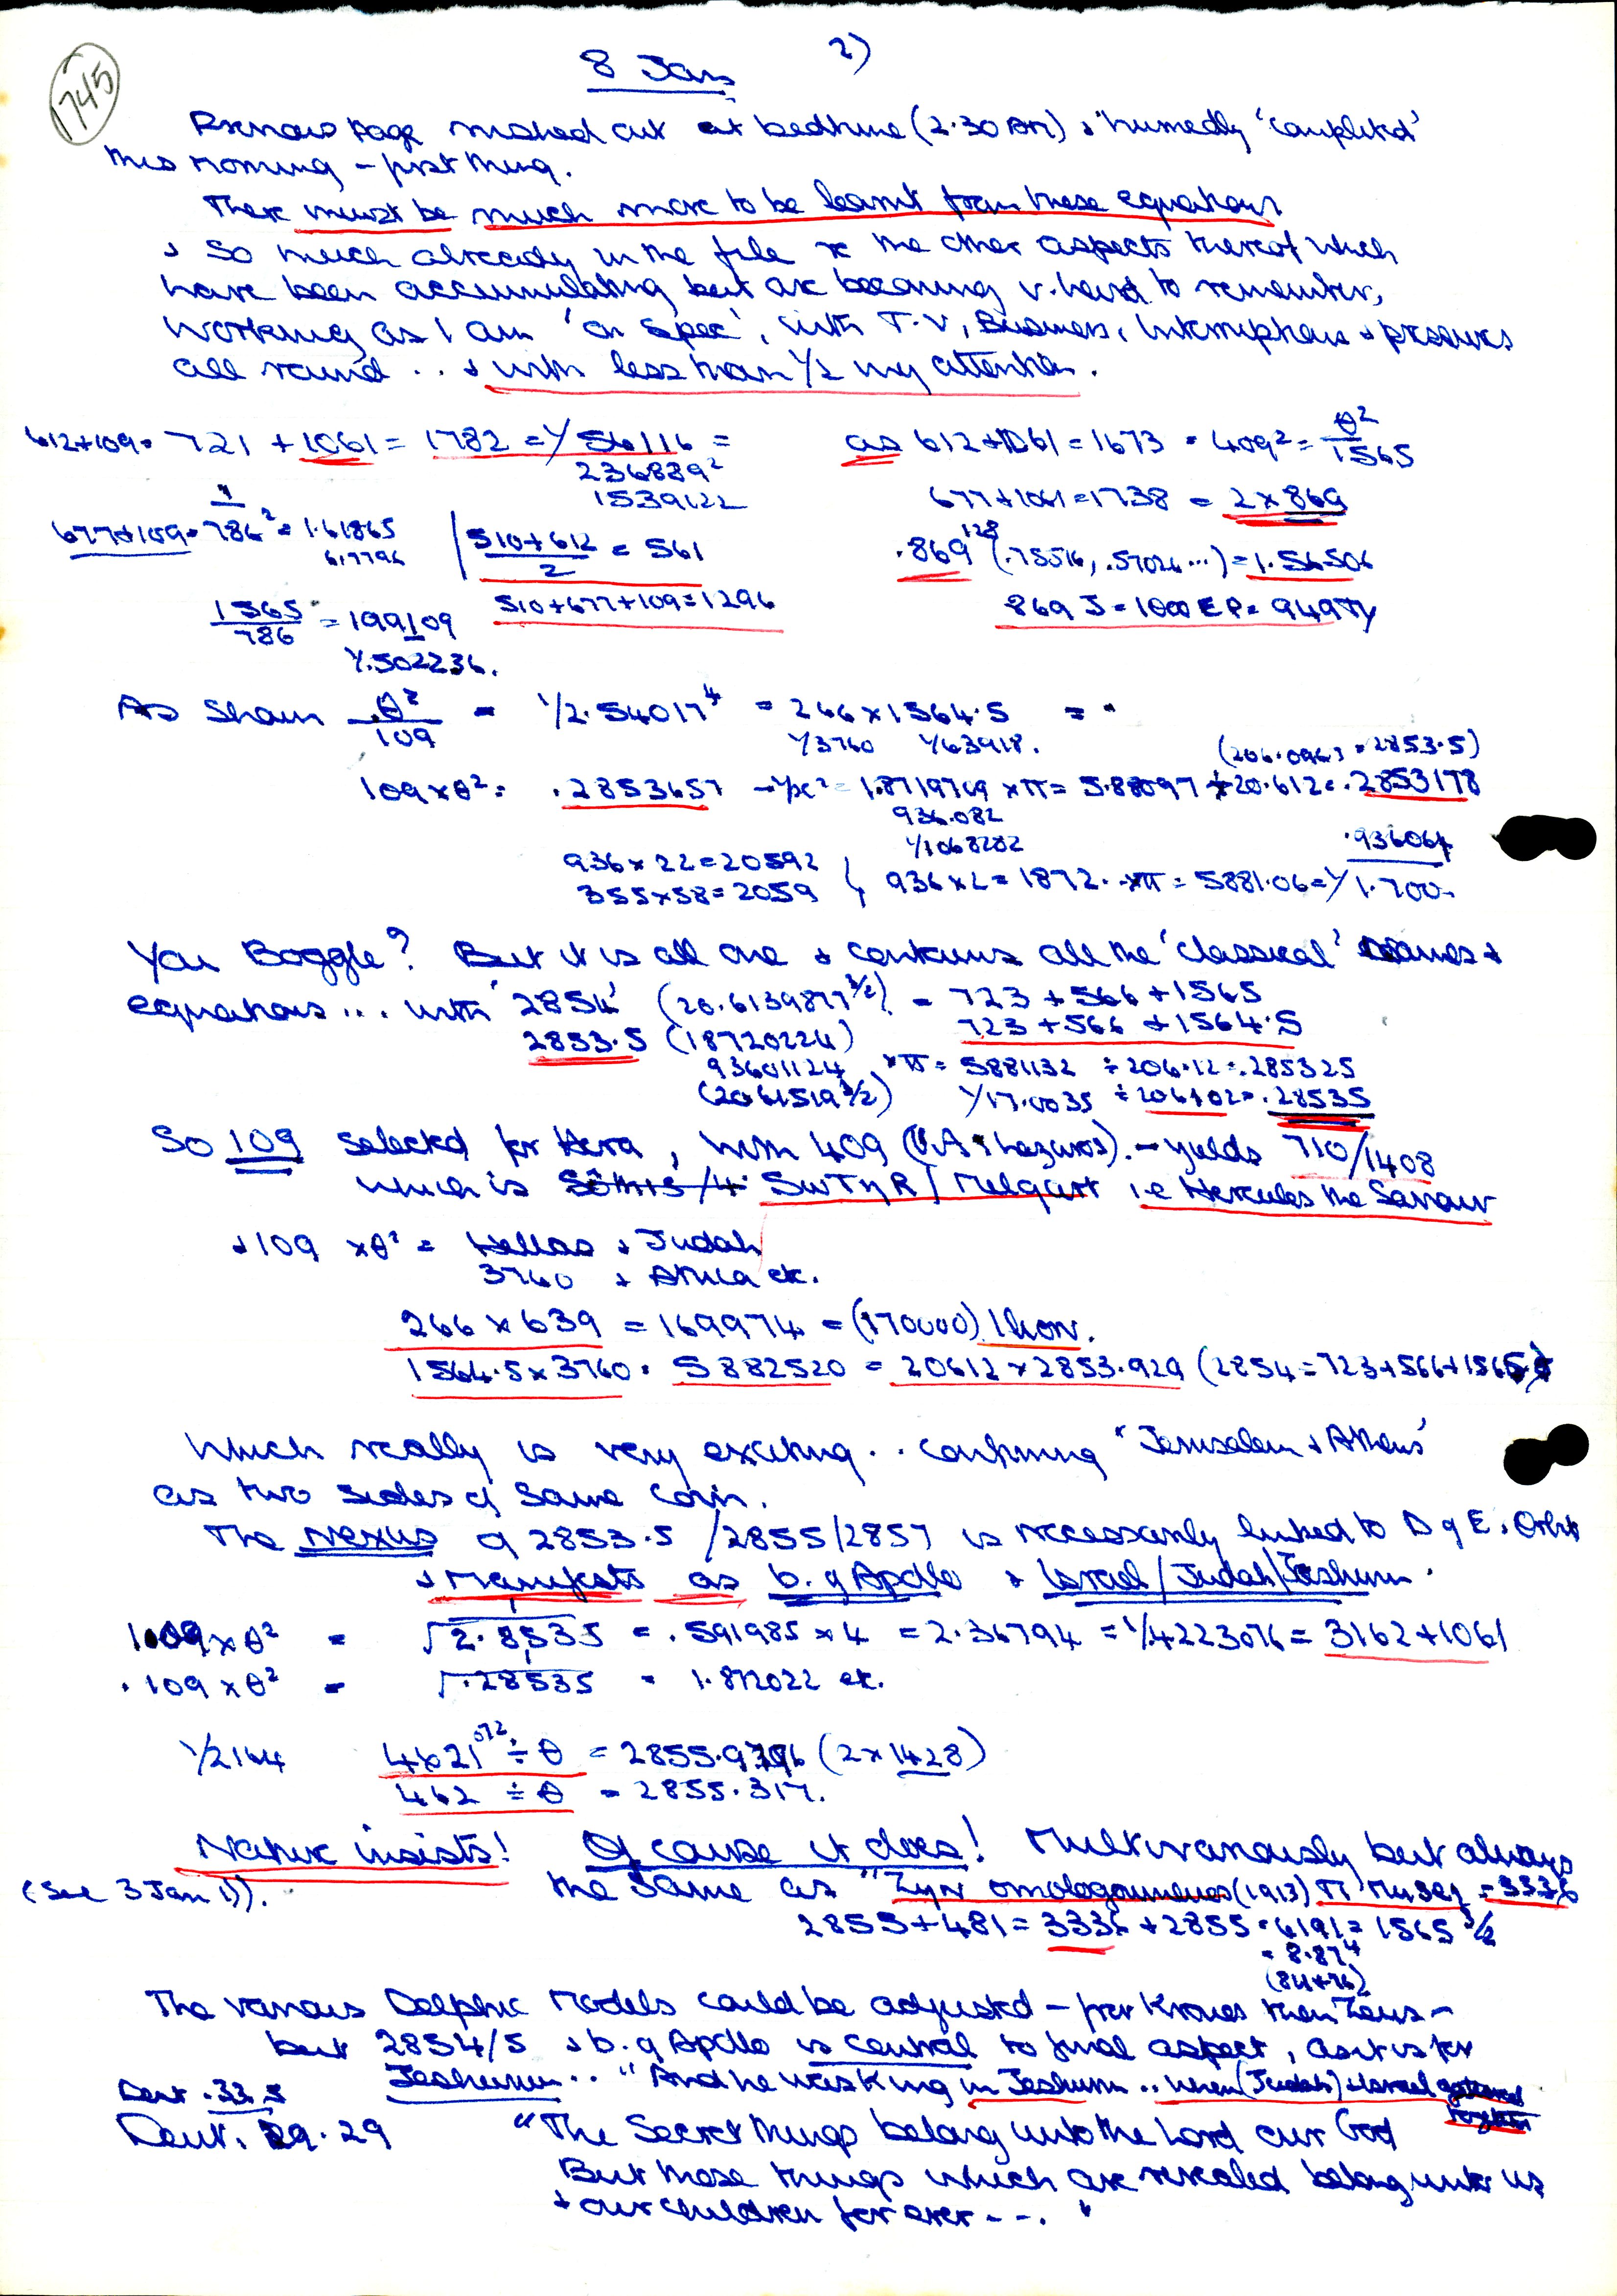 1745
8 Jan
2)
Previous page rushed out at bedtime (2.30 AM) & hurriedly 'completed'
this morning - first thing.
There must be much more to be learnt from these equations
& So much already in the file re the other aspects thereof which
have been accumulating but are becoming v. hard to remember,
Working as I am 'on Spec', with T.V, Business, Interruptions & pressures
all round .. & with less than 1/2 my attention.
612+109= 721 + 1061 = 1782 = 1/56116 =
236889²
1539122
as 612+1061 = 1673 = 409² = θ²/1565
677+1061=1738 = 2x869
677+109= 786² = 1.61865
617796
510+612/2 = 561
.869 128 (.75516, .57026...) = 1.56506
510+677+109=1296
869 J = 1000 EP = 949 Ty
1565/786 = 199109
1/.502236.
As Shown θ²/109 = 1/2.54017⁴ = 266 x 1564.5 =
1/3760 1/63918.
(206.0963 = 2853.5)
109 x θ² = .2853657 - 1/x² = 1.8719769 x π = 5.88097 ÷ 20.612 = .2853178
936.082
1/1068282
.936064
936 x 22 = 20592
355 x 58 = 2059
936 x 2 = 1872. xπ = 5881.06 = 1/1.700
You Boggle? But it is all one & contains all the 'classical' Names &
equations... with '2854' (20.6139877 3/2) = 723 + 566 + 1565
2853.5 (18720224) 723 + 566 + 1564.5
93601124 xπ = 5881132 ÷ 206.12 = .285325
(2061519 3/2) 1/17.0035 ÷ 206102 = .28535
So 109 selected for Hera, with 409 - yields 710/1408
which is SwTηR / Melqart i.e Hercules the Saviour
& 109 x θ² = Hellas & Judah
3760 & Attica etc.
266 x 639 = 169974 = (170000)
1564.5 x 3760 = 5882520 = 20612 x 2853.929 (2854 = 723+566+1565
Which really is very exciting .. confirming "Jerusalem & Athens"
as two sides of Same Coin.
The Nexus of 2853.5 /2855/2857 is necessarily linked to D of E. Orbit
& Manifests as b. of Apollo & Israel/Judah/Jeshurun.
1.09 x θ² = √2.8535 = .591985 x 4 = 2.36794 = 1/.4223076 = 3162+1061
.109 x θ² = √.28535 = 1.872022 etc.
1/2164 4621 072 ÷ θ = 2855.9396 (2 x 1428)
462 ÷ θ = 2855.317.
Nature insists! Of cause it does! Multivariously but always
(See 3 Jan 1)). the Same as "Zyn omologoumenos (1913) = 3336
2855 + 481 = 3336 + 2855 = 6191 = 1565 3/2
= 8.87⁴
(811+76)
The various Delphic Models could be adjusted - for Kronos then Zeus -
but 2854/5 & b. of Apollo is central to final aspect, as it is for
Deut. 33.5 Jeshurun .. "And he was King in Jeshurun .. when (Judah) & Israel gathered
together
Deut. 29.29 "The Secret things belong unto the Lord our God
But those things which are revealed belong unto us
& our children for ever - - . "